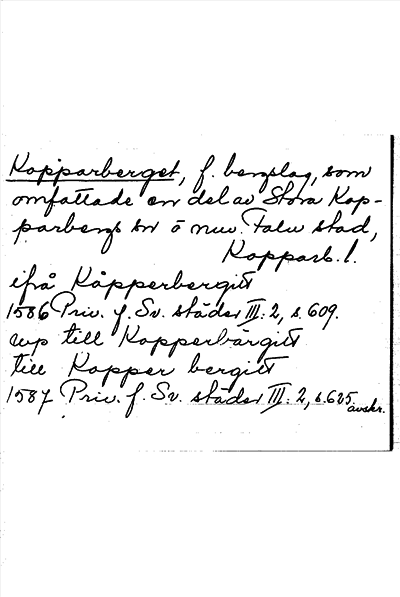 Kopparberget, f. bergslag, som
omfattade en del av Stora Kop-
parbergs sn o nuv. Falu stad,
Kopparb. l.
ifrå Kåpperbergitt
1586 Priv. f. Sv. städer III: 2, s. 609.
up till Kopperbärgitt
till Kopper bergitt
1587 Priv. f. Sv. städer III: 2, s. 625
avskr.